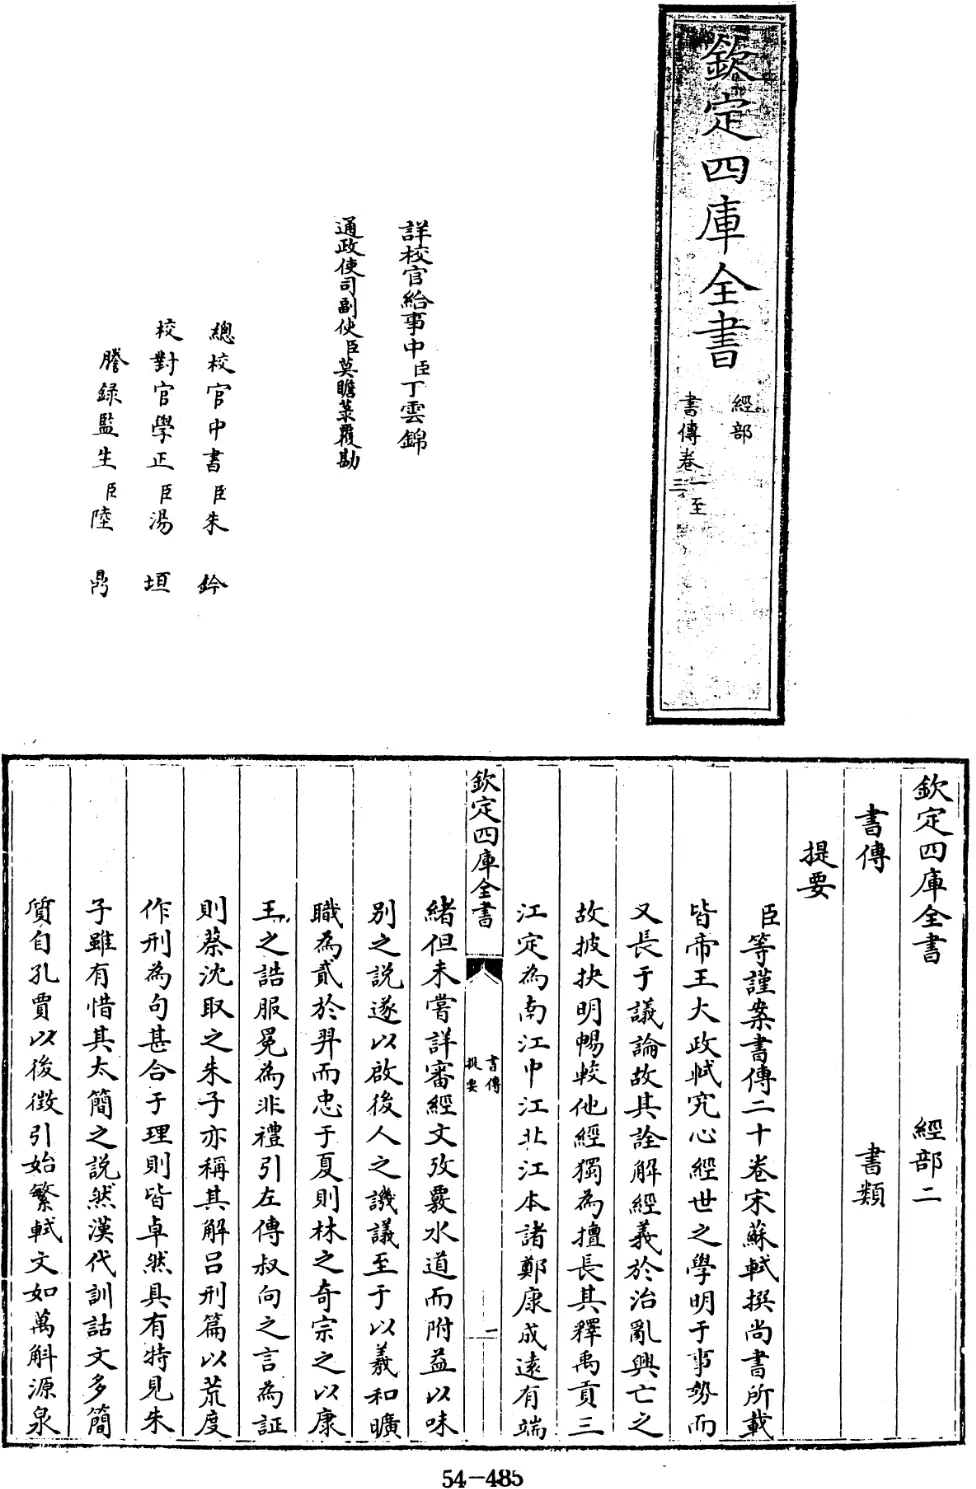 欽定四庫全書
經部
書傳卷一至
三
詳校官給事中臣丁雲錦
通政使司副使臣莫瞻菉覆勘
總校官中書臣朱鈐
校對官學正臣湯垣
謄録監生臣陸鼎
欽定四庫全書 經部二
書傳 書類
提要
臣等謹案書傳二十卷宋蘇軾撰尚書所載
皆帝王大政軾究心經世之學明于事勢而
又長于議論故其詮解經義於治亂興亡之
故披抉明暢較他經獨為擅長其釋禹貢三
江定為南江中江北江本諸鄭康成逺有端
欽定四庫全書
書傳
提要
一
緒但未嘗詳審經文攷覈水道而附益以味
别之說遂以啟後人之譏議至于以羲和曠
職為貳於羿而忠于夏則林之奇宗之以康
王之誥服冕為非禮引左傳叔向之言為証
則蔡沈取之朱子亦稱其解吕刑篇以荒度
作刑為句甚合于理則皆卓然具有特見朱
子雖有惜其太簡之説然漢代訓詁文多簡
質自孔賈以後徴引始繁軾文如萬斛源泉
54-485